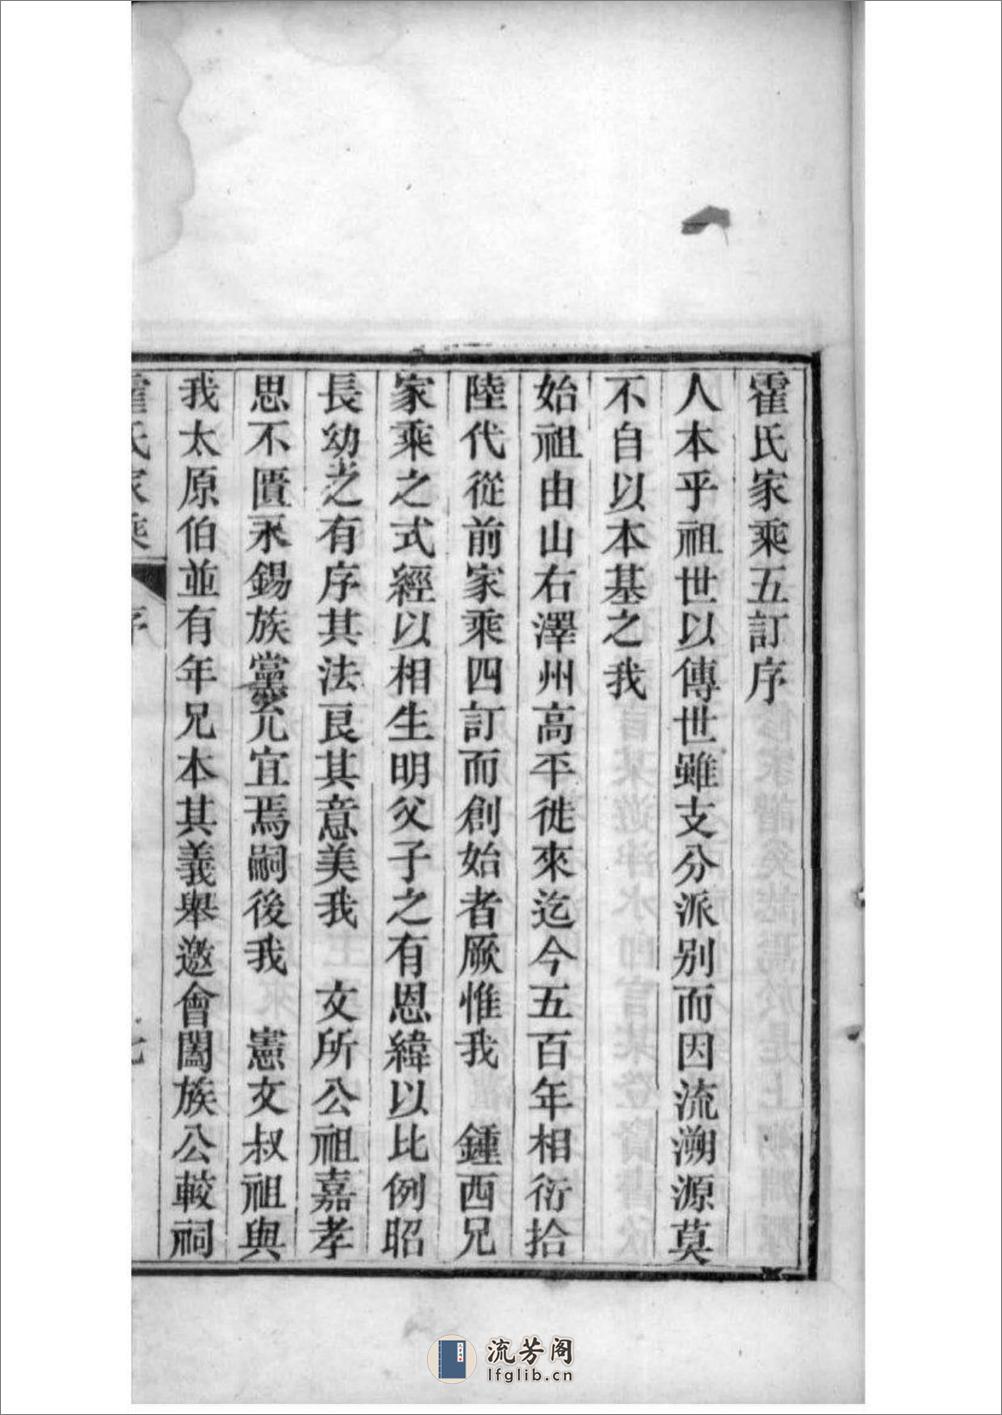 霍氏家乘五訂序
人本乎祖世以傳世雖支分派别而因流溯源莫
不自以本基之我
始祖由山右澤州高平徙來迄今五百年相衍拾
陸代從前家乘四訂而創始者厥惟我　鍾西兄
家乘之式經以相生明父子之有恩緯以比例昭
長幼之有序其法良其意美我　文所公祖嘉孝
思不匱永錫族黨允宜焉嗣後我　憲文叔祖與
我太原伯並有年兄本其義舉邀會闔族公較祠
霍氏家乘　序　七
流芳阁
lfglib.cn